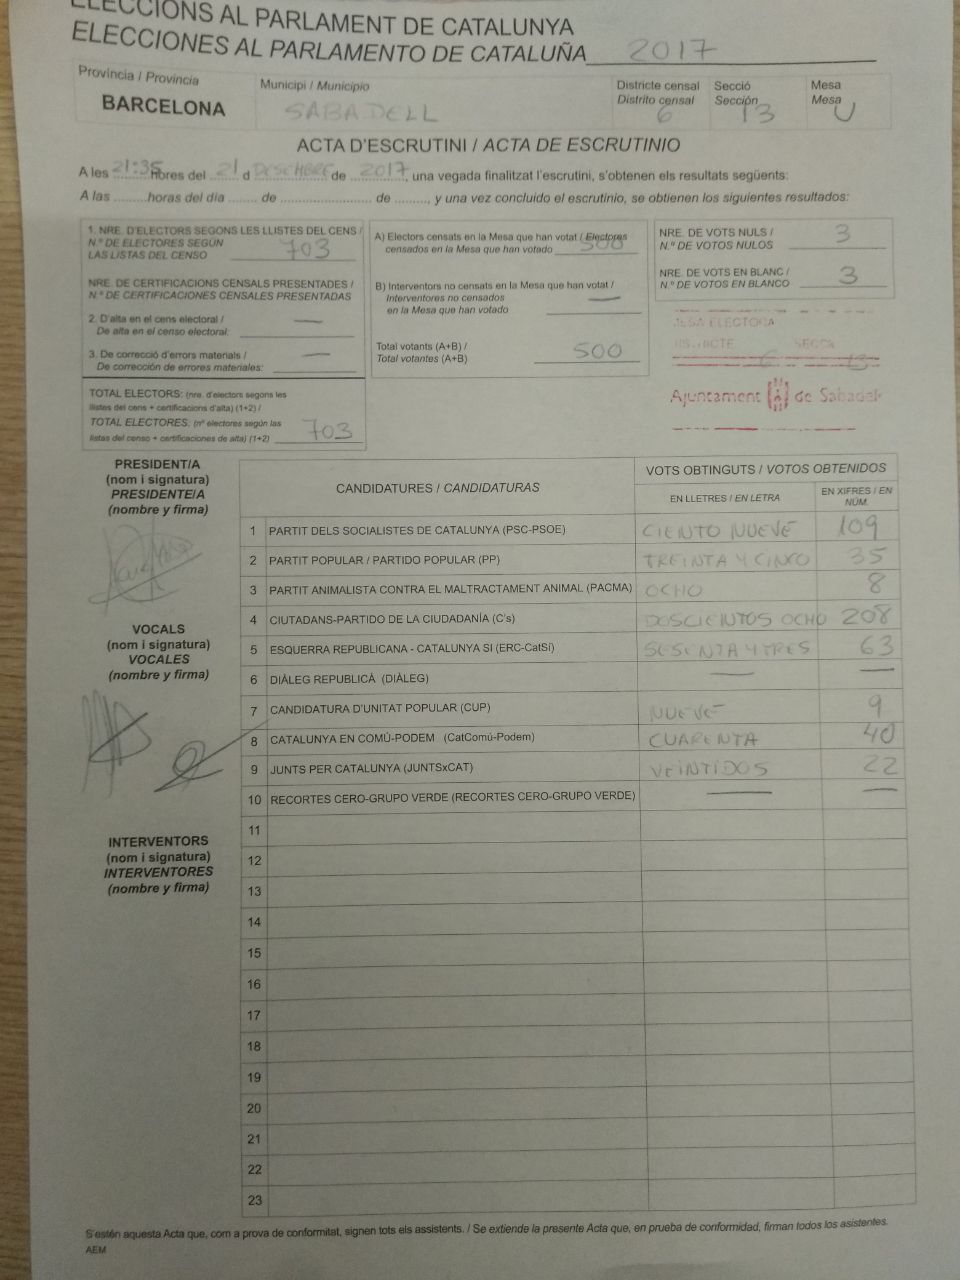 ELECCIONS AL PARLAMENT DE CATALUNYA
ELECCIONES AL PARLAMENTO DE CATALUÑA 2017
Provincia / Provincia
BARCELONA
Municipi / Municipio
SABADELL
Districte censal
Distrito censal
6
Secció
Sección
13
Mesa
Mesa
U
ACTA D'ESCRUTINI / ACTA DE ESCRUTINIO
A les 21:35 hores del 21 d DESEMBRE de 2017, una vegada finalitzat l'escrutini, s'obtenen els resultats següents:
A las .........horas del día ....... de ....................... de ........, y una vez concluido el escrutinio, se obtienen los siguientes resultados:
1. NRE. D'ELECTORS SEGONS LES LLISTES DEL CENS /
N.º DE ELECTORES SEGÚN
LAS LISTAS DEL CENSO 703
NRE. DE CERTIFICACIONS CENSALS PRESENTADES /
N.º DE CERTIFICACIONES CENSALES PRESENTADAS
2. D'alta en el cens electoral / —
De alta en el censo electoral:
3. De correcció d'errors materials / —
De corrección de errores materiales:
TOTAL ELECTORS: (nre. d'electors segons les
llistes del cens + certificacions d'alta) (1+2) /
TOTAL ELECTORES: (nº electores según las
listas del censo + certificaciones de alta) (1+2) 703
A) Electors censats en la Mesa que han votat / Electores
censados en la Mesa que han votado 500
B) Interventors no censats en la Mesa que han votat /
Interventores no censados —
en la Mesa que han votado
Total votants (A+B) /
Total votantes (A+B) 500
NRE. DE VOTS NULS /
N.º DE VOTOS NULOS 3
NRE. DE VOTS EN BLANC /
N.º DE VOTOS EN BLANCO 3
6 13
Ajuntament de Sabadell
PRESIDENT/A
(nom i signatura)
PRESIDENTE/A
(nombre y firma)
VOCALS
(nom i signatura)
VOCALES
(nombre y firma)
INTERVENTORS
(nom i signatura)
INTERVENTORES
(nombre y firma)
CANDIDATURES / CANDIDATURAS
VOTS OBTINGUTS / VOTOS OBTENIDOS
EN LLETRES / EN LETRA
EN XIFRES / EN
NÚM.
1 PARTIT DELS SOCIALISTES DE CATALUNYA (PSC-PSOE) CIENTO NUEVE 109
2 PARTIT POPULAR / PARTIDO POPULAR (PP) TREINTA Y CINCO 35
3 PARTIT ANIMALISTA CONTRA EL MALTRACTAMENT ANIMAL (PACMA) OCHO 8
4 CIUTADANS-PARTIDO DE LA CIUDADANÍA (C's) DOSCIENTOS OCHO 208
5 ESQUERRA REPUBLICANA - CATALUNYA SI (ERC-CatSí) SESENTA Y TRES 63
6 DIÀLEG REPUBLICÀ (DIÀLEG) — —
7 CANDIDATURA D'UNITAT POPULAR (CUP) NUEVE 9
8 CATALUNYA EN COMÚ-PODEM (CatComú-Podem) CUARENTA 40
9 JUNTS PER CATALUNYA (JUNTSxCAT) VEINTIDOS 22
10 RECORTES CERO-GRUPO VERDE (RECORTES CERO-GRUPO VERDE) — —
11
12
13
14
15
16
17
18
19
20
21
22
23
S'estén aquesta Acta que, com a prova de conformitat, signen tots els assistents. / Se extiende la presente Acta que, en prueba de conformidad, firman todos los asistentes.
AEM